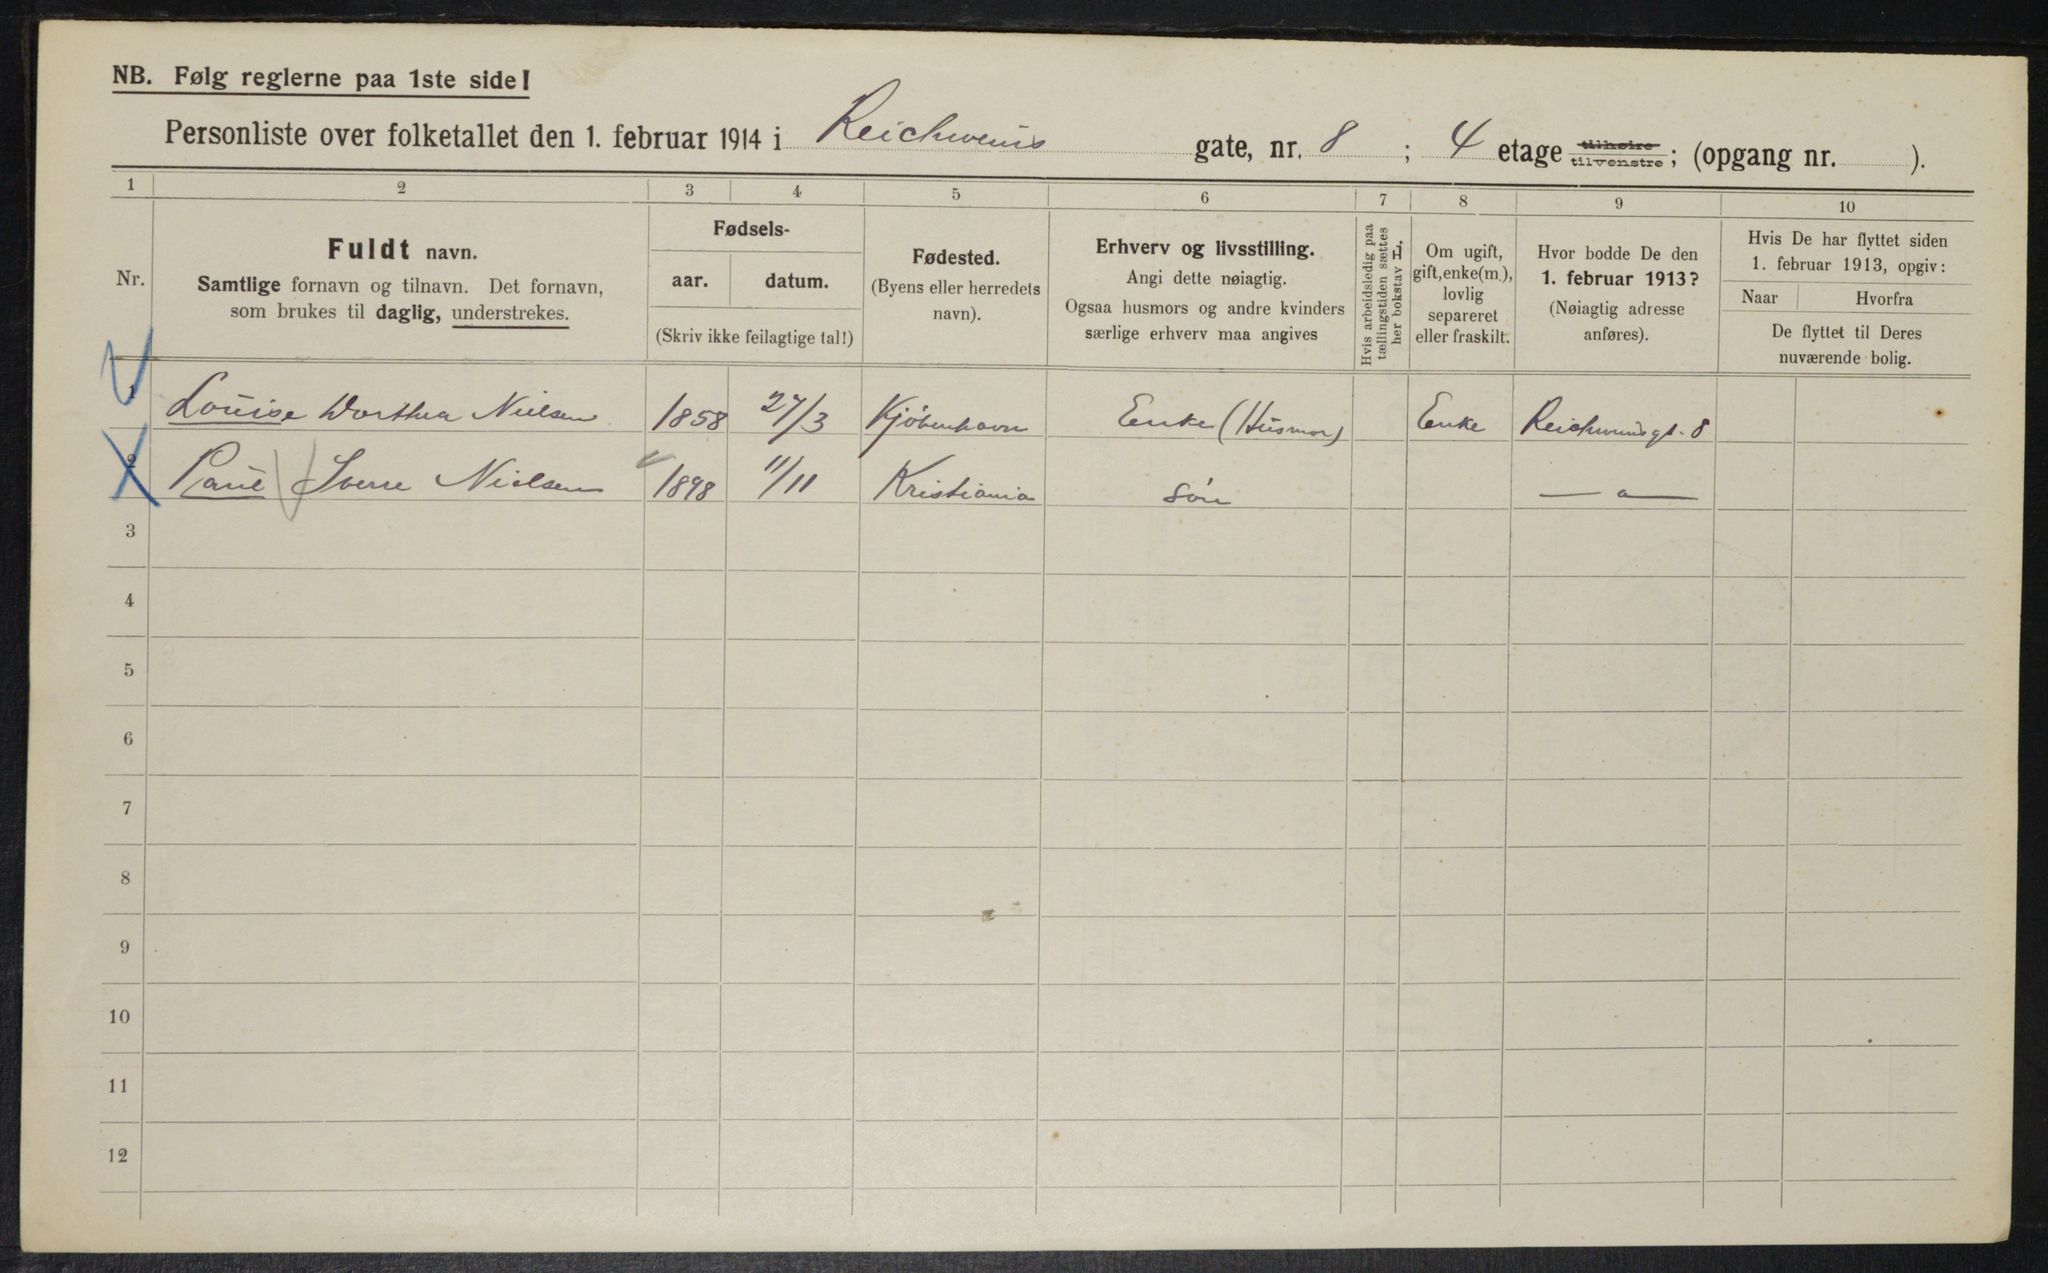 NB. Følg reglerne paa 1ste side!
Personliste over folketallet den 1. februar 1914 i Reichweins gate, nr. 8 ; 4 etage tilhøire tilvenstre; (opgang nr. ).
1 2 3 4 5 6 7 8 9 10
Nr.
Fuldt navn.
Samtlige fornavn og tilnavn. Det fornavn,
som brukes til daglig, understrekes.
Fødsels-
aar. datum.
(Skriv ikke feilagtige tal!)
Fødested.
(Byens eller herredets
navn).
Erhverv og livsstilling.
Angi dette nøiagtig.
Ogsaa husmors og andre kvinders
særlige erhverv maa angives
Hvis arbeidsledig paa
tællingstiden sættes
her bokstav L,
Om ugift,
gift, enke(m.),
lovlig
separeret
eller fraskilt.
Hvor bodde De den
1. februar 1913?
(Nøiagtig adresse
anføres).
Hvis De har flyttet siden
1. februar 1913, opgiv:
Naar Hvorfra
De flyttet til Deres
nuværende bolig.
1 Louise Dorthea Nielsen 1858 27/3 Kjøbenhavn Enke (Husmor) Enke Reichweinsgt. 8
2 Paul Sverre Nielsen 1898 11/11 Kristiania Søn — a —
3
4
5
6
7
8
9
10
11
12